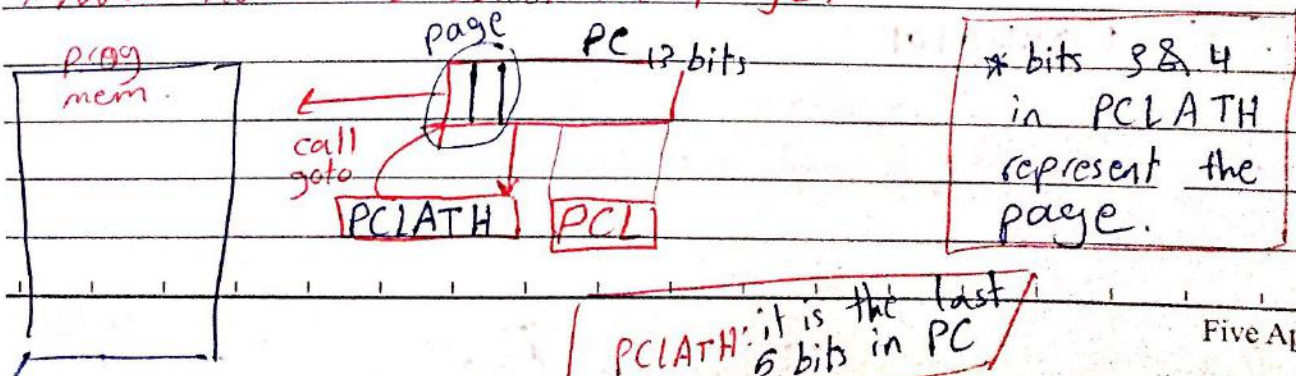 page
PC 13 bits
prog
mem.
call
goto
PCLATH
PCL
* bits 3 & 4
in PCLATH
represent the
page.
PCLATH: it is the last
5 bits in PC
Five Ap